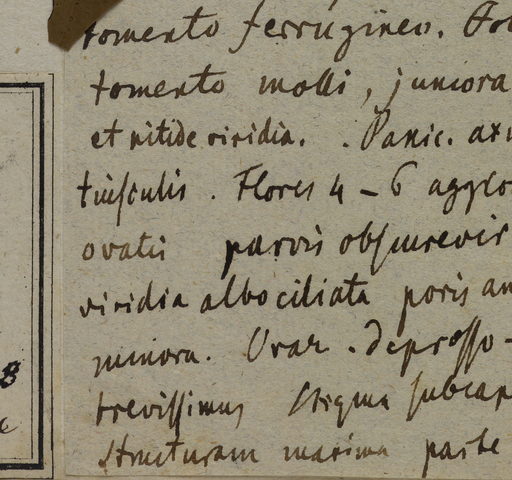 tomento ferrugineo. Fol
tomento molli, juniora
et nitide viridia. . Panic. axi
tiusculis. Flores 4 – 6 agglo
ovatis parvis obscurevir
viridia albociliata poris an
minora. Ovar. depresso-
brevissimus Stigma subcap
structuram maxima parte
B